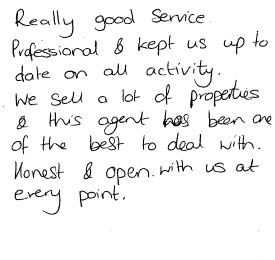 Really good service.
Professional & kept us up to
date on all activity.
We sell a lot of properties
& this agent has been one
of the best to deal with.
Honest & open with us at
every point.